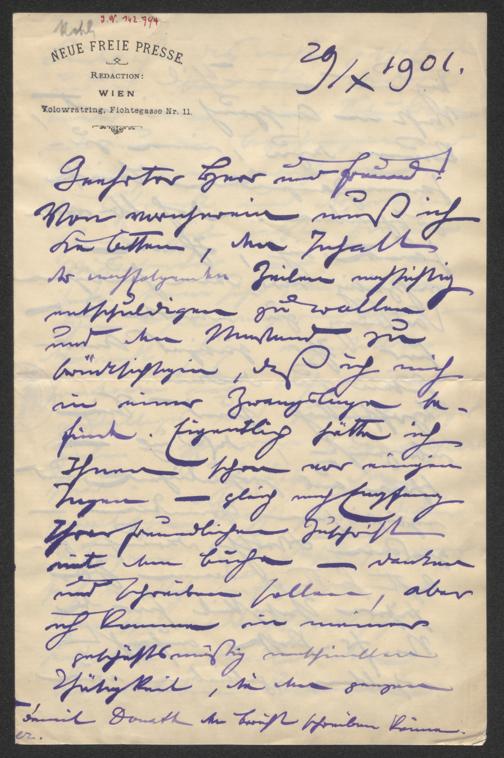 J.N. 142.794
NEUE FREIE PRESSE
REDACTION:
WIEN
Kolowratring, Fichtegasse Nr. 11.
29/X 1901.
Geehrter Herr und Freund!
Von vornherein muß ich
Sie bitten, den Inhalt
der nachfolgenden Zeilen nachsichtig
entschuldigen zu wollen
und den Umstand zu
berücksichtigen, daß ich mich
in einer Zwangslage be-
finde. Eigentlich hätte ich
Ihnen schon vor einigen
Tagen — gleich nach Empfang
Ihrer freundlichen Zuschrift
mit dem Buche — danken
und schreiben sollen, aber
ich komme in meiner
geschäftsmäßig
Thätigkeit, die den ganzen
damit Donath den schreiben könne.